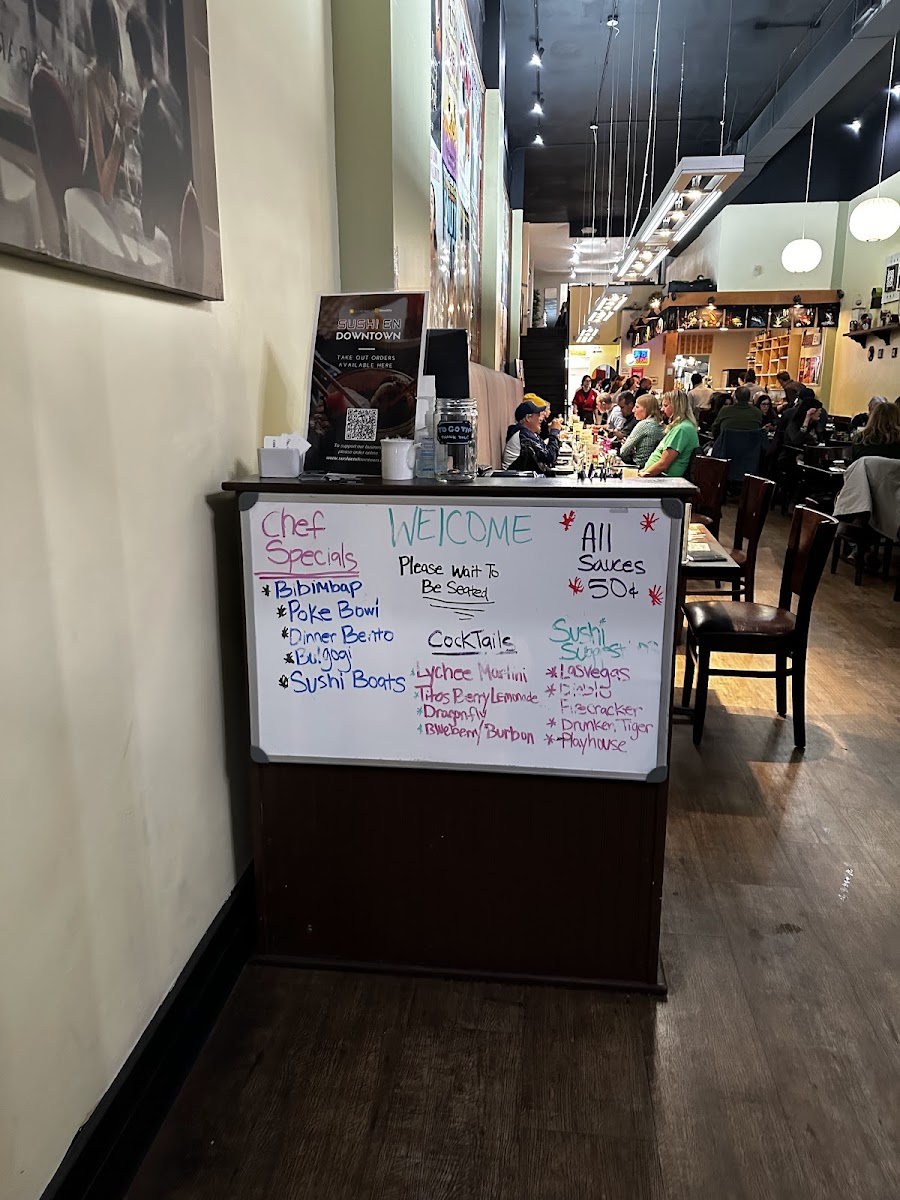 SUSHI EN
DOWNTOWN
TAKE OUT ORDERS
AVAILABLE HERE
To support our business
please order online
TO GO TIPS
THANK YOU
Chef
Specials
* Bibimbap
* Poke Bowl
* Dinner Bento
* Bulgogi
* Sushi Boats
WELCOME
Please Wait To
Be Seated
CockTails
Lychee Martini
Titos Berry Lemonade
Dragonfly
Blueberry Burbon
All
Sauces
50¢
Sushi
* Las Vegas
* Diablo
Firecracker
* Drunken Tiger
* Playhouse